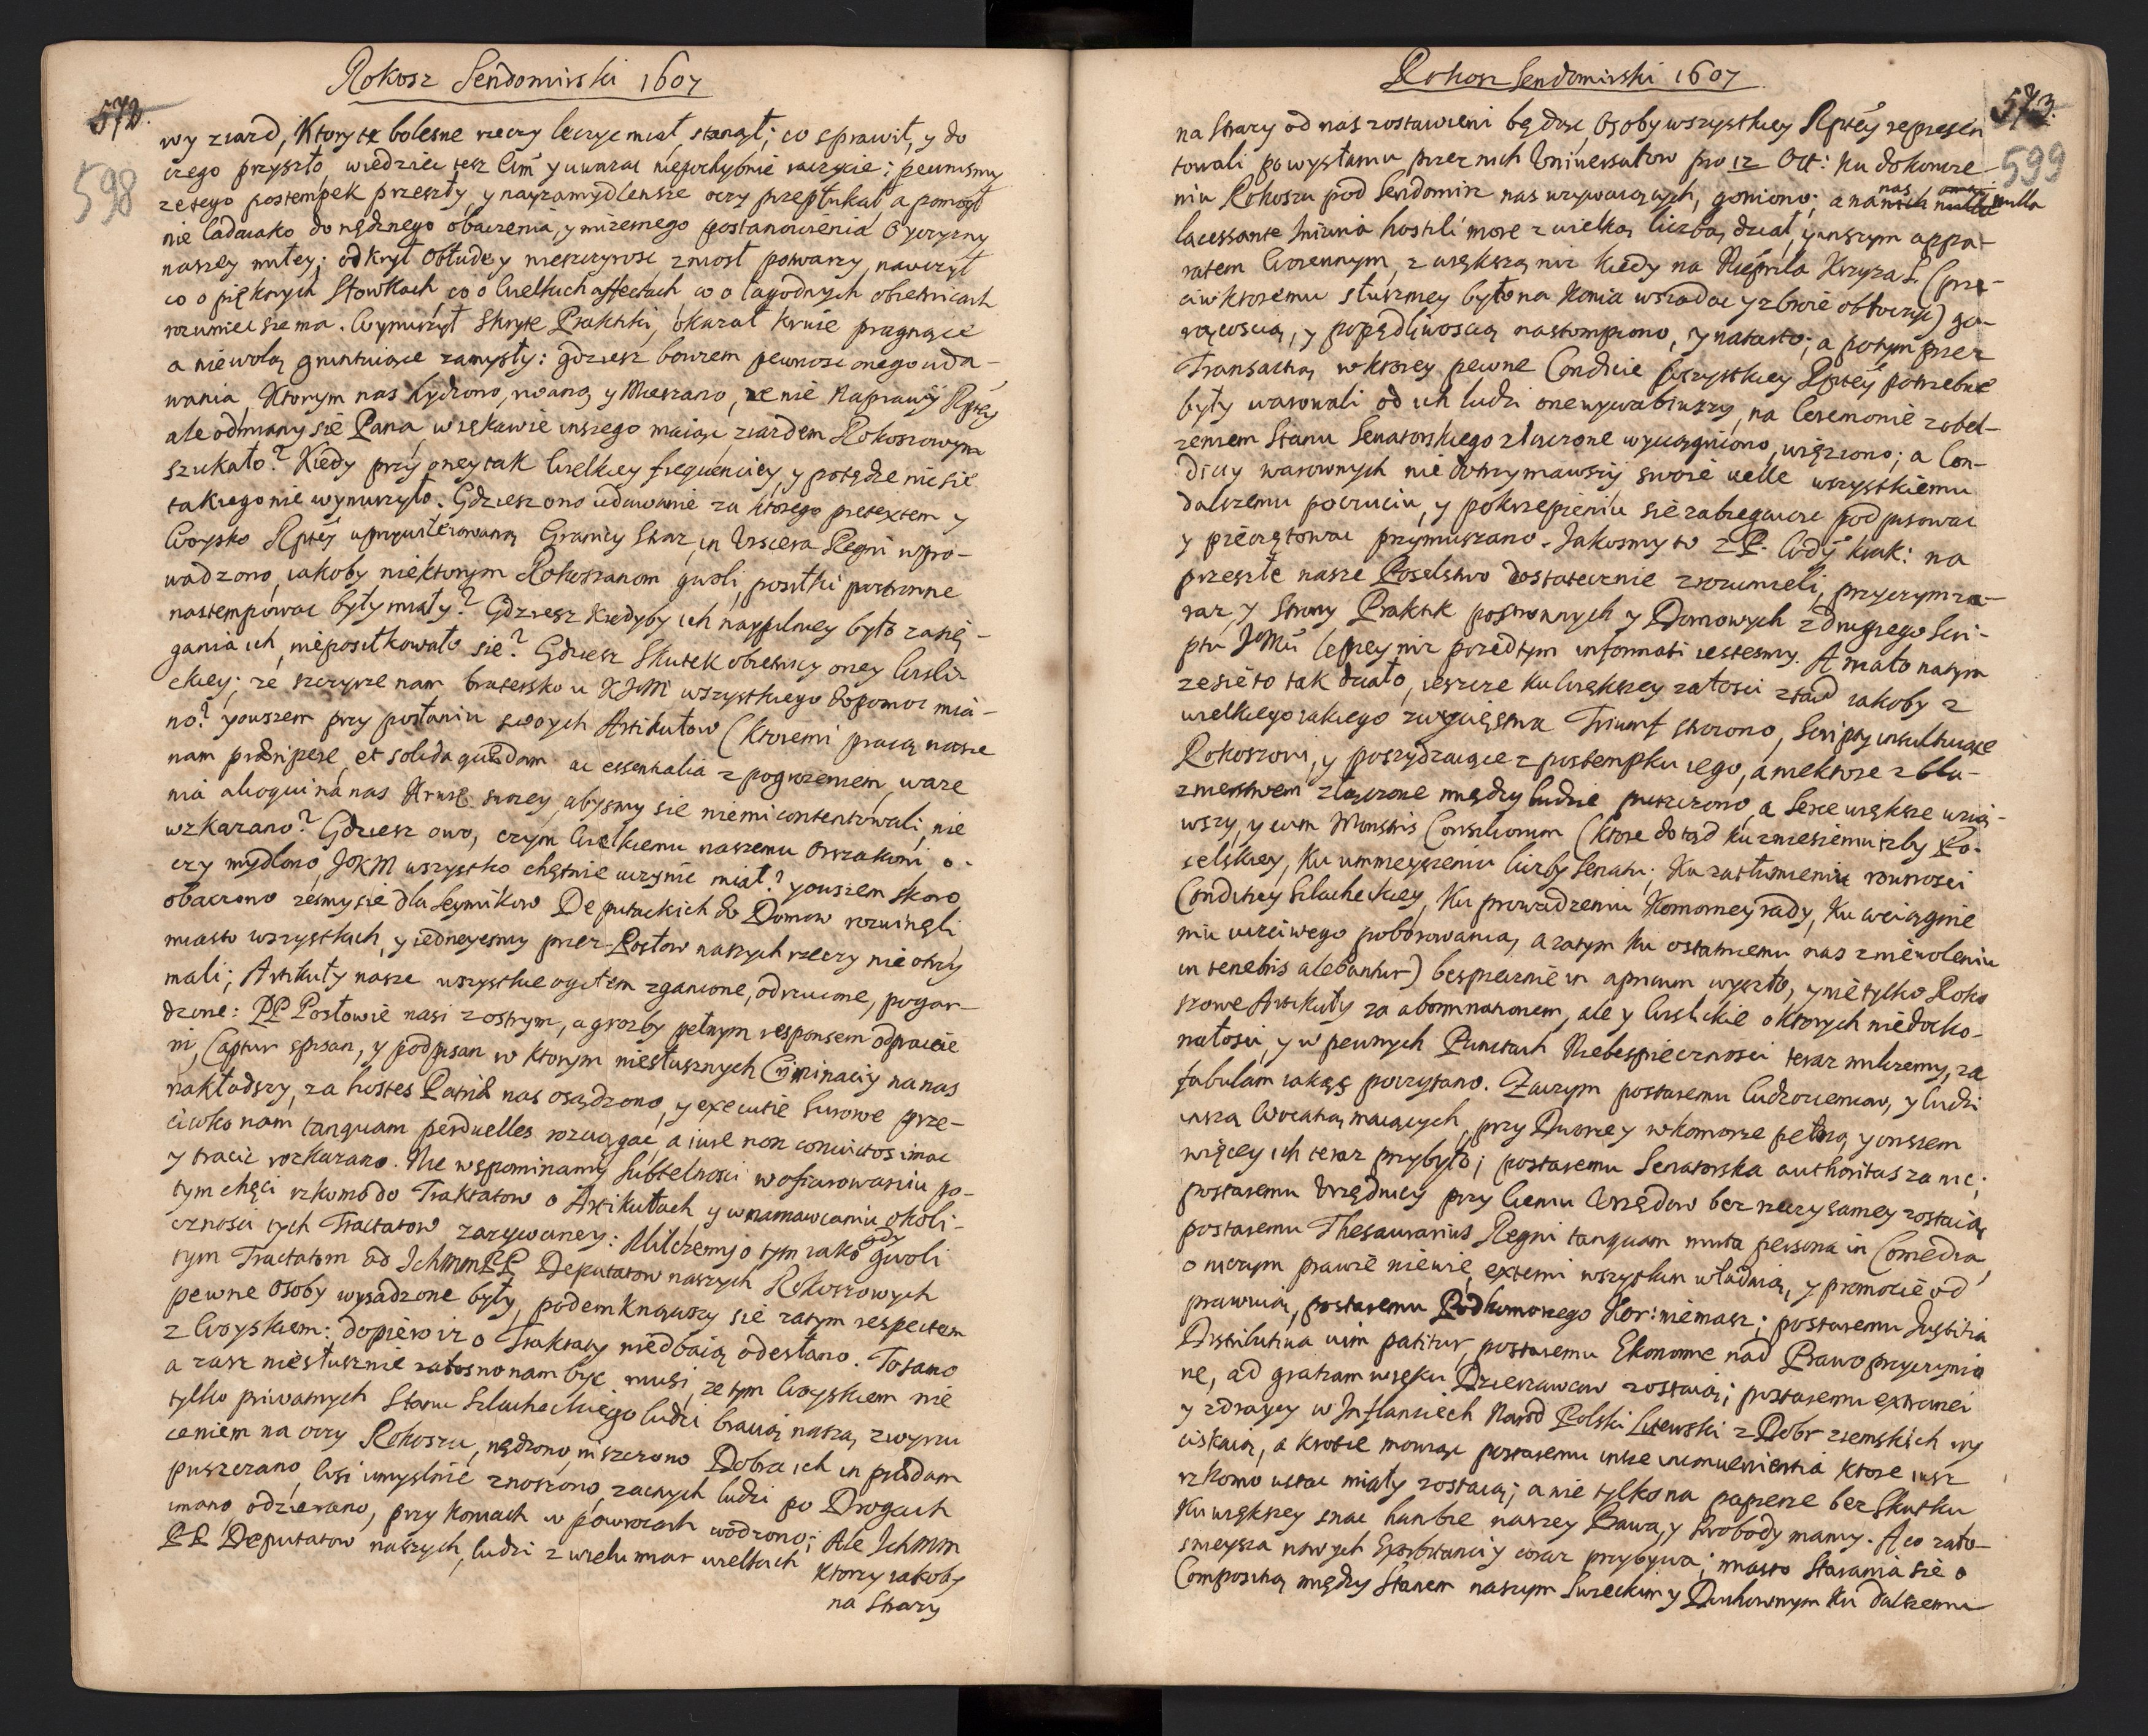 Rokosz Sendomirski 1607
572.
598
wy ziazd, Ktory te bolesne rzeczy leczyc miał, stanął; co sprawił, y do
czego przyszło, wiedziec tesz Wm y uwazac niepochybnie raczycie: pewnismy
ze tego postempek przeszły, y nayzamydlensze oczy przepłukał, a pomogł
nie ladaiako do nędznego obaczenia, y mizernego postanowienia Oyczyzny
naszey miłey; odkrył obłudę y nieszczyrosc zniosł powarzy, nauczył
co o pięknych Słowkach, co o wielkich affectach, co o łagodnych obietnicach
rozumiec sie ma. Wynurzył skryte Praktiki, okazał krwie pragnące
a niewolą gruntuiące zamysły: gdziesz bowiem pewnosc onego uda-
wania, Ktorym nas hydzono, y mieszano, ze nie Naprawy Rptey
ale odmiany sie Pana, w rękawie inszego maiąc ziazdem Rokoszowym
szukało? Kiedy przy oney tak wielkiey frequenciey, y potędze nic sie
takiego nie wynurzyło. Gdziesz ono udawanie za ktorego pretextem y
Woysko Rptey Granicy Straz, in viscera Regni wpro-
wadzono, iakoby niektorym Rokoszanom gwoli, posiłki postronne
nastempowac były miały? Gdziesz kiedyby ich naypilniey było zacię-
gania ich, nieposiłkowało sie? Gdziesz Skutek obietnicy oney Wisli-
ckiey; ze szczyrze nam bratersko u KJM wszystkiego dopomoc mia-
no? y owszem przy posłaniu swoych Artikułow (ktoremi pracą nasze
nam praeripere, et solida quaedam ac essentialia z pogrozeniem, waze-
nia alioqui na nas Krwie swoiey, abysmy sie niemi contentowali, nie
wzkazano? Gdziesz owo, czym wielkiemu naszemu Orszakowi o-
czy mydlono, JKM wszystko chętnie uczynic miał? y owszem skoro
obaczono zesmy sie dla Seymikow Deputackich do Domow rozwinęli
miasto wszystkich, y iedneyesmy przez Posłow naszych rzeczy nie otrzy
mali; Artikuły nasze wszystkie ogułem zganione, odrzucone, pogar-
dzone: PP Posłowie nasi z ostrym, a grozby pełnym responsem odprawie
ni, Captur spisan, y podpisan w ktorym niesłusznych Criminaciy na nas
nakładszy, za hostes Patriae nas osądzono, y executie surowe prze-
ciwko nam tanquam perduelles rozciągac, a iure non convictos imac
y tracic rozkazano. Nie wspominamy Subtelnosci w ofiarowaniu po-
tym chęci rzkomo do Traktatow o Artikułach y w namawianiu okoli-
cznosci tych Tractatow zazywaney: Milczemy o tym iako gdy gwoli
tym Tractatom od Ichmm PP Deputatow naszych Rokoszowych
pewne osoby wysadzone były, podemknąwszy sie zatym respectem
z Woyskiem: dopiero iz o Traktaty niedbaią odesłano. To samo
a zasz niesłusznie załosno nam byc musi, ze tym Woyskiem nie
tylko priwatnych Stanu Szlacheckiego ludzi bracią naszą, z wyrzu
ceniem na oczy Rokoszu, nędzono, niszczono Dobra ich in praedam
puszczano, Wsi umyslnie znoszono, zacnych ludzi po Drogach
imano odzierano, przy koniach w powrozach wodzono; Ale Ichmm
PP Deputatow naszych, ludzi z wielu miar wielkich ktorzy iakoby
na Strazy
Rokosz Sendomirski 1607
573.
599
na Strazy od nas zostawieni będąc, Osoby wszystkiey Rptey represen
towali po wysłaniu przez nich Uniwersałow pro 12 Oct: ku dokoncze
niu Rokoszu pod Sendomirz nas wzywaiących, goniono; a na nas nulla
lacessante iniuria hostili more z wielką liczbą dział, y inszym appa-
ratem Woiennym, z większą niz kiedy na Nieprzla Krzyza S. (prze-
ciw ktoremu słuszniey było na Konia wsiadac y zbroie obłoczyc) go-
rącoscią, y popędliwoscią nastompiono, y natarto; a potym przez
Transactią w ktorey pewne Condicie wszystkiey Rptey potrzebne
były warowali od ich ludzi one wywabiwszy, na Ceremonie z obel-
zeniem Stanu Senatorskiego złączone wyciągniono, więziono; a Con-
diciy warownych nie dotrzymawszy swoie velle wszystkiemu
dalszemu poczuciu, y pokrzepieniu sie zabiegaiące podpisowac
y pieczętowac przymuszano. Jakosmy to z P. Wdy krak: na
przeszłe nasze Poselstwo dostatecznie zrozumieli, przyczym za-
raz y strony Praktik postronnych y Domowych z drugiego Scri-
ptu JMci lepiey niz przedtym informati iestesmy. A mało na tym
ze sie to tak działo, ieszcze ku większey załosci ztąd iakoby z
wielkiego iakiego zwycięstwa Triumf stroiono, Scripty insultuiące
Rokoszowi, y poszydzaiące z postempku iego, a niektore z blu-
znierstwem złączone między ludzie puszczono, a Serce większe wzią-
wszy, y cum Monstris Consiliorum (ktore dotąd ku zniesieniu izby Po-
selskiey, Ku umnieyszeniu liczby Senatu; Ku zatłumieniu rownosci
Conditiey Szlacheckiey, Ku prowadzeniu Komorney rady, Ku wciągnie
niu wiecznego poborowania, a zatym ku ostatniemu nas zniewoleniu
in tenebris alebantur) bespiecznie in apricum wyszło, y nie tylko Roko
szowe Artikuły za abominationem, ale y Wislickie o ktorych niedosko-
nałosci, y w pewnych Punctach Niebespiecznosci teraz milczemy, za
fabulam iakąs poczytano. Zaczym postaremu Cudzoziemcow, y ludzi
inszą Vocatią maiących, przy Dworze y w komorze pełno, y owszem
więcey ich teraz przybyło; postaremu Senatorska authoritas za nic;
postaremu Urzędnicy przy cieniu Urzędow bez rzeczy samey zostaią
postaremu Thesaurarius Regni tanquam muta persona in Comedia,
o niczym prawie niewie, externi wszystkim władną, y promocie od
prawuią, postaremu Podkomorzego Kor: niemasz; postaremu Justitia
Distributiva vim patitur, postaremu Ekonomie nad Prawo przyczynio
ne, ad gratiam w ręku Dzierzawcow zostaią; postaremu extranei
y zdraycy w Inflanciech Narod Polski Litewski z Dobr ziemskich wy
ciskaią, a krotce mowiąc postaremu insze incumuenientia ktore iusz
rzkomo ustac miały zostaią; a nie tylko na papierze bez Skutku
Ku większey snac hanbie naszey Prawa, y Swobody mamy. A co zało-
snieysza nowych Exorbitanciy coraz przybywa; miasto starania sie o
Compositią między Stanem naszym Swieckim y Duchownym Ku dalszemu